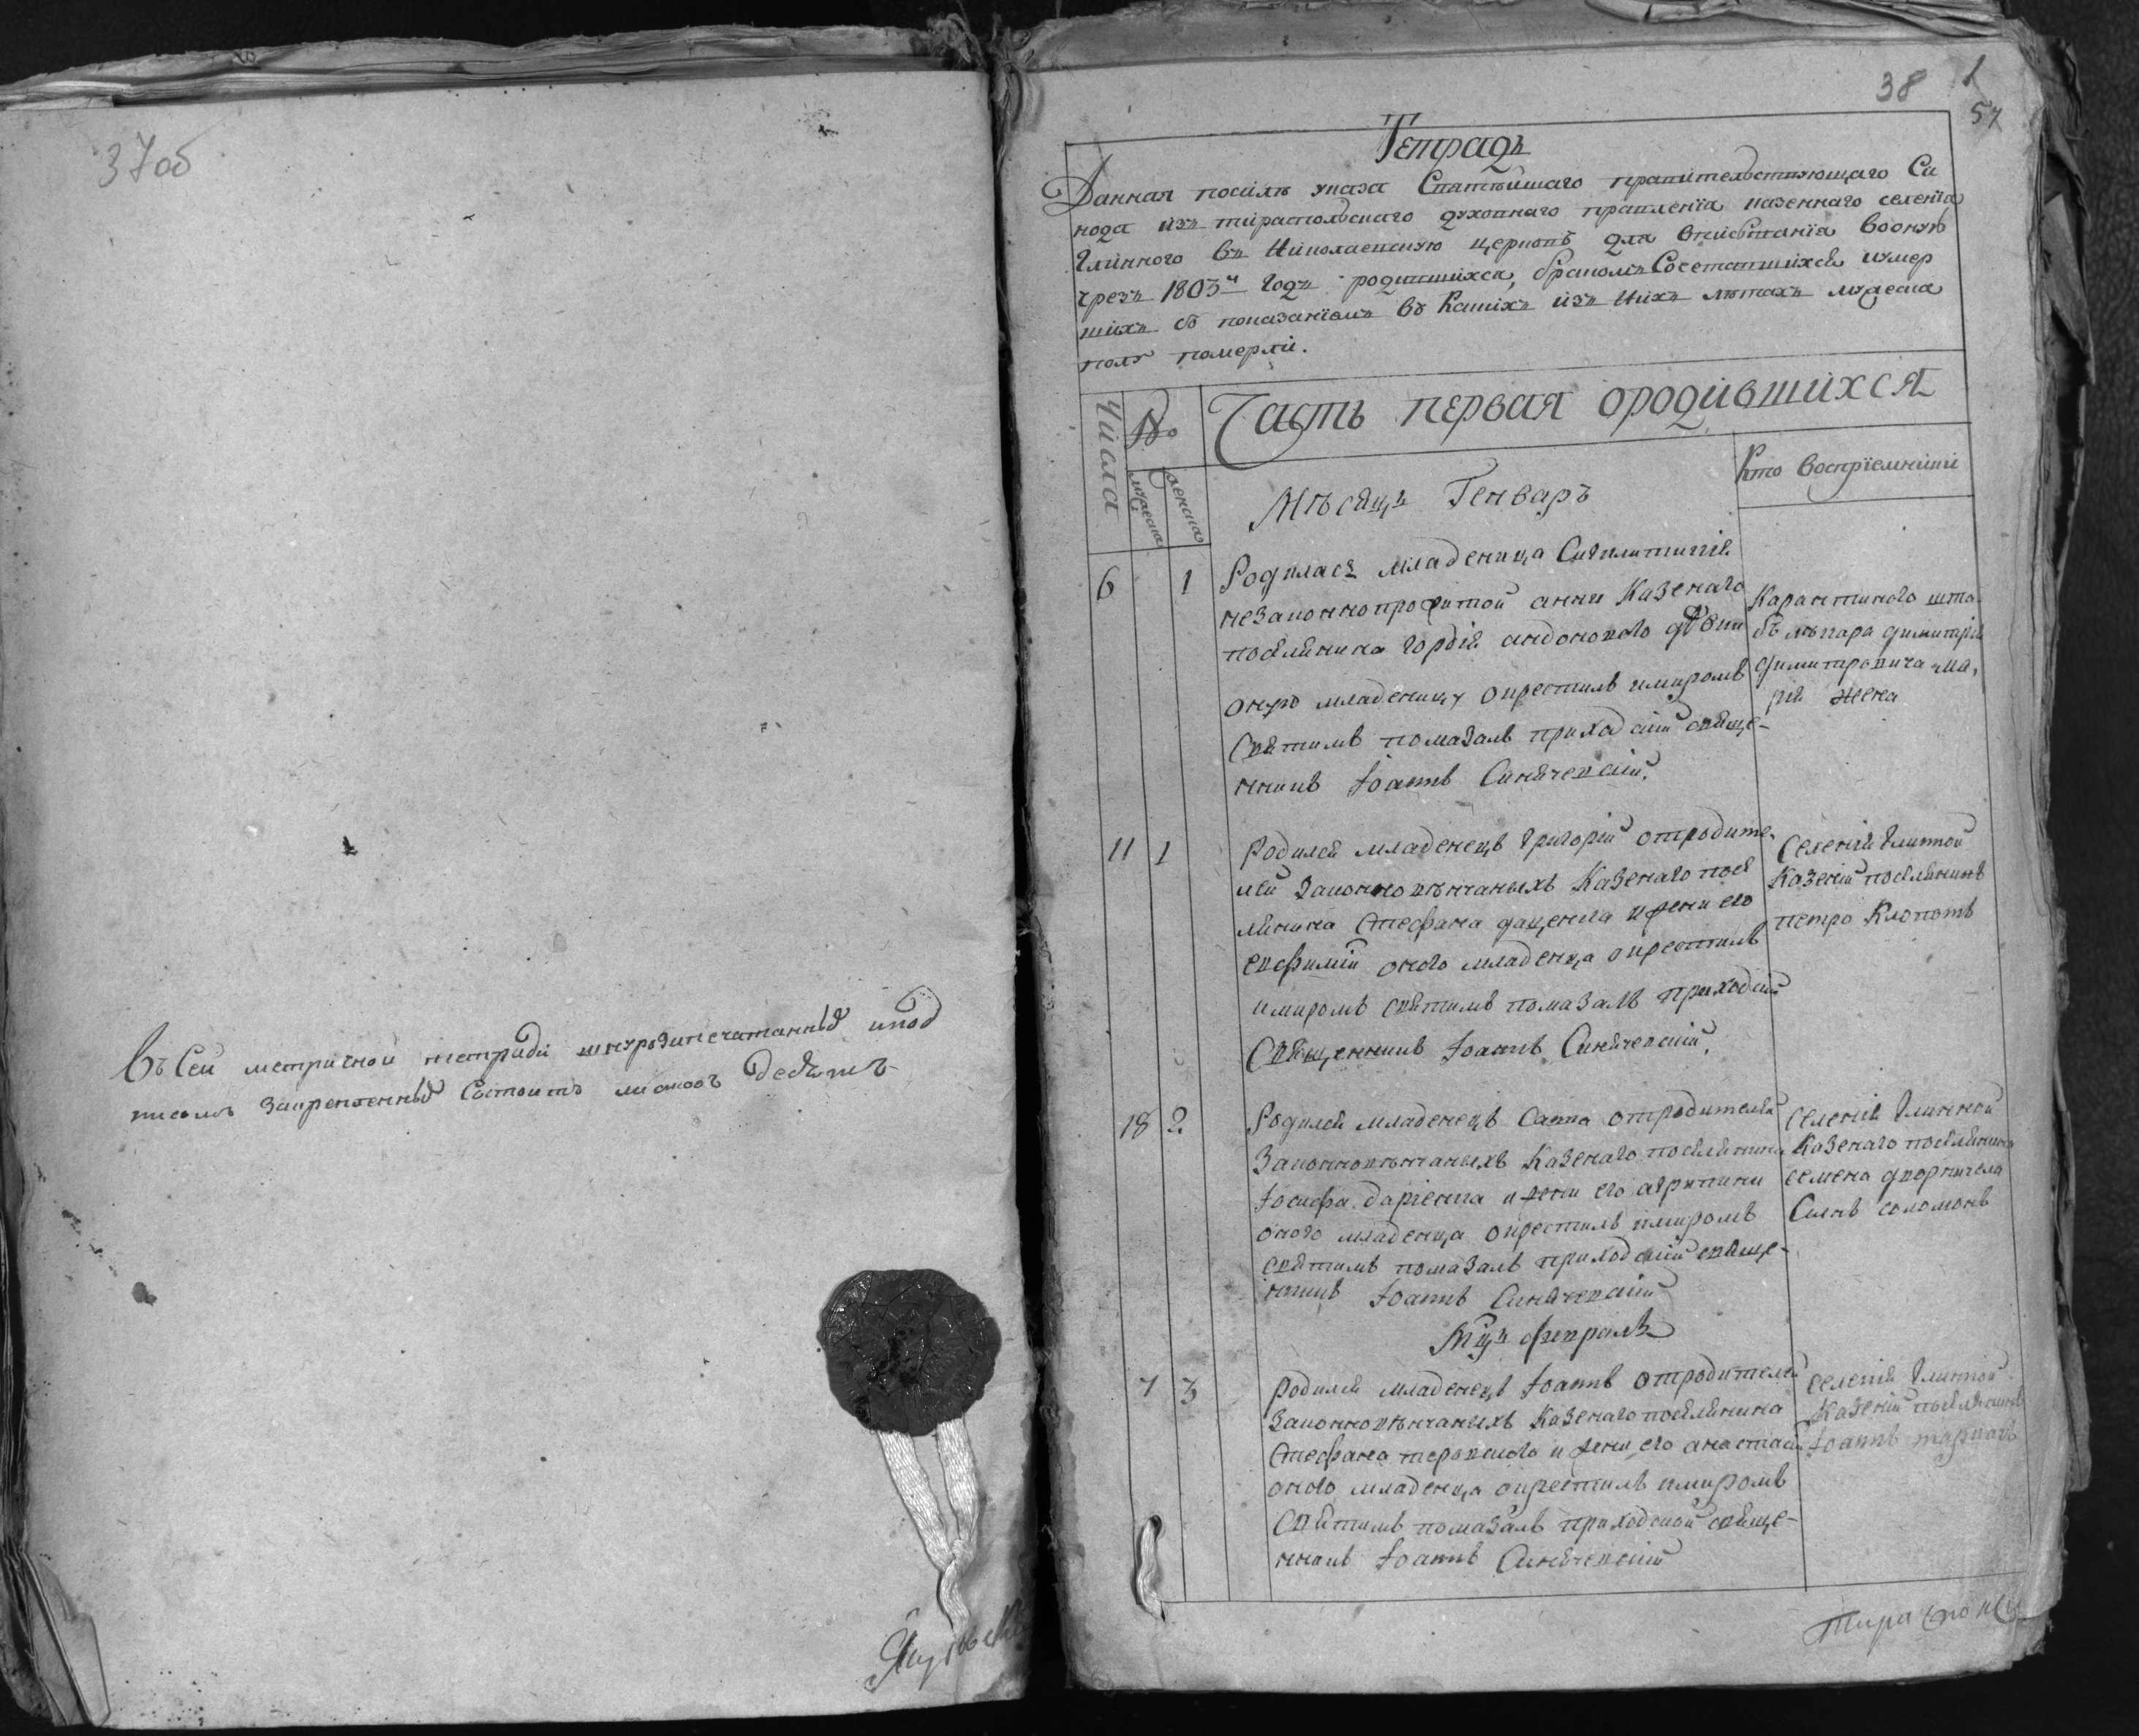 37об
Въ Сей метричной тетради шнурозапечатанный ипод
писомъ Закрепленный Состоитъ листовъ Десять
38
1
57
Тетрадь
Данная посилѣ указа Святѣйшаго правителвствующаго Си
нода изъ тираспольскаго духовнаго правленїя казеннаго селенїя
Глинного въ Николаевскую церковь для вписыванїя вооную
чрезъ 1803й годъ родившихся, бракомъ Сочетавшихся иумер
шихъ съ показанїемъ въ Какихъ изъ нихъ лѣтахъ мужеска
полу померли.
Числа
№
Часть первая ородившихся
мужеска
женска
Мѣсяцъ Генварь
Кто воспрїемники
6 1
Родилась младеница
незаконнопрожитой анни Казенаго
поселянина Гордія
оную младеницу окрестилъ имиромъ
Святимъ помазалъ приходскій свяще-
нникъ Іоаннъ Синячевскій.
Карантиного шта
бъ лѣкара димитрія
димитровича ма,
рія жена
11 1
Родился младенецъ Григорій отродите,
лей Законновѣнчаныхъ Казенаго посе
лянина Стефана даценка и жени его
евфиміи оного младенца окрестилъ
имиромъ святимъ помазалъ приходскій
Священникъ Іоаннъ Синячевскій.
Селенія Глинной
Казеній поселянинъ
петро Клопотъ
18 2
Родился младенецъ Савва отродителей
Законновѣнчаныхъ Казенаго поселянина
Іосифа даріенка и жени его агрипини
оного младенца окрестилъ имиромъ
святимъ помазалъ приходскій свяще-
нникъ Іоаннъ Синячевскій
Селенія Глинной
Казенаго поселянина
семена
Синъ соломонъ
Мцъ февраль
7 3
Родился младенецъ Іоаннъ отродителей
Законновѣнчаныхъ Казенаго поселянина
Стефана и жени его анастасіи
оного младенца окрестилъ имиромъ
Святимъ помазалъ приходской свяще-
нникъ Іоаннъ Синячевскій
селенія Глиной
Казеній поселянинъ
Іоаннъ